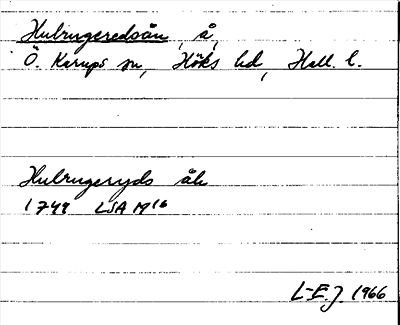 Hulrugeredsån, å,
Ö. Karups sn, Höks hd, Hall. l.
Hulrugeryds åh
1749 LSA M16
L-E.J. 1966